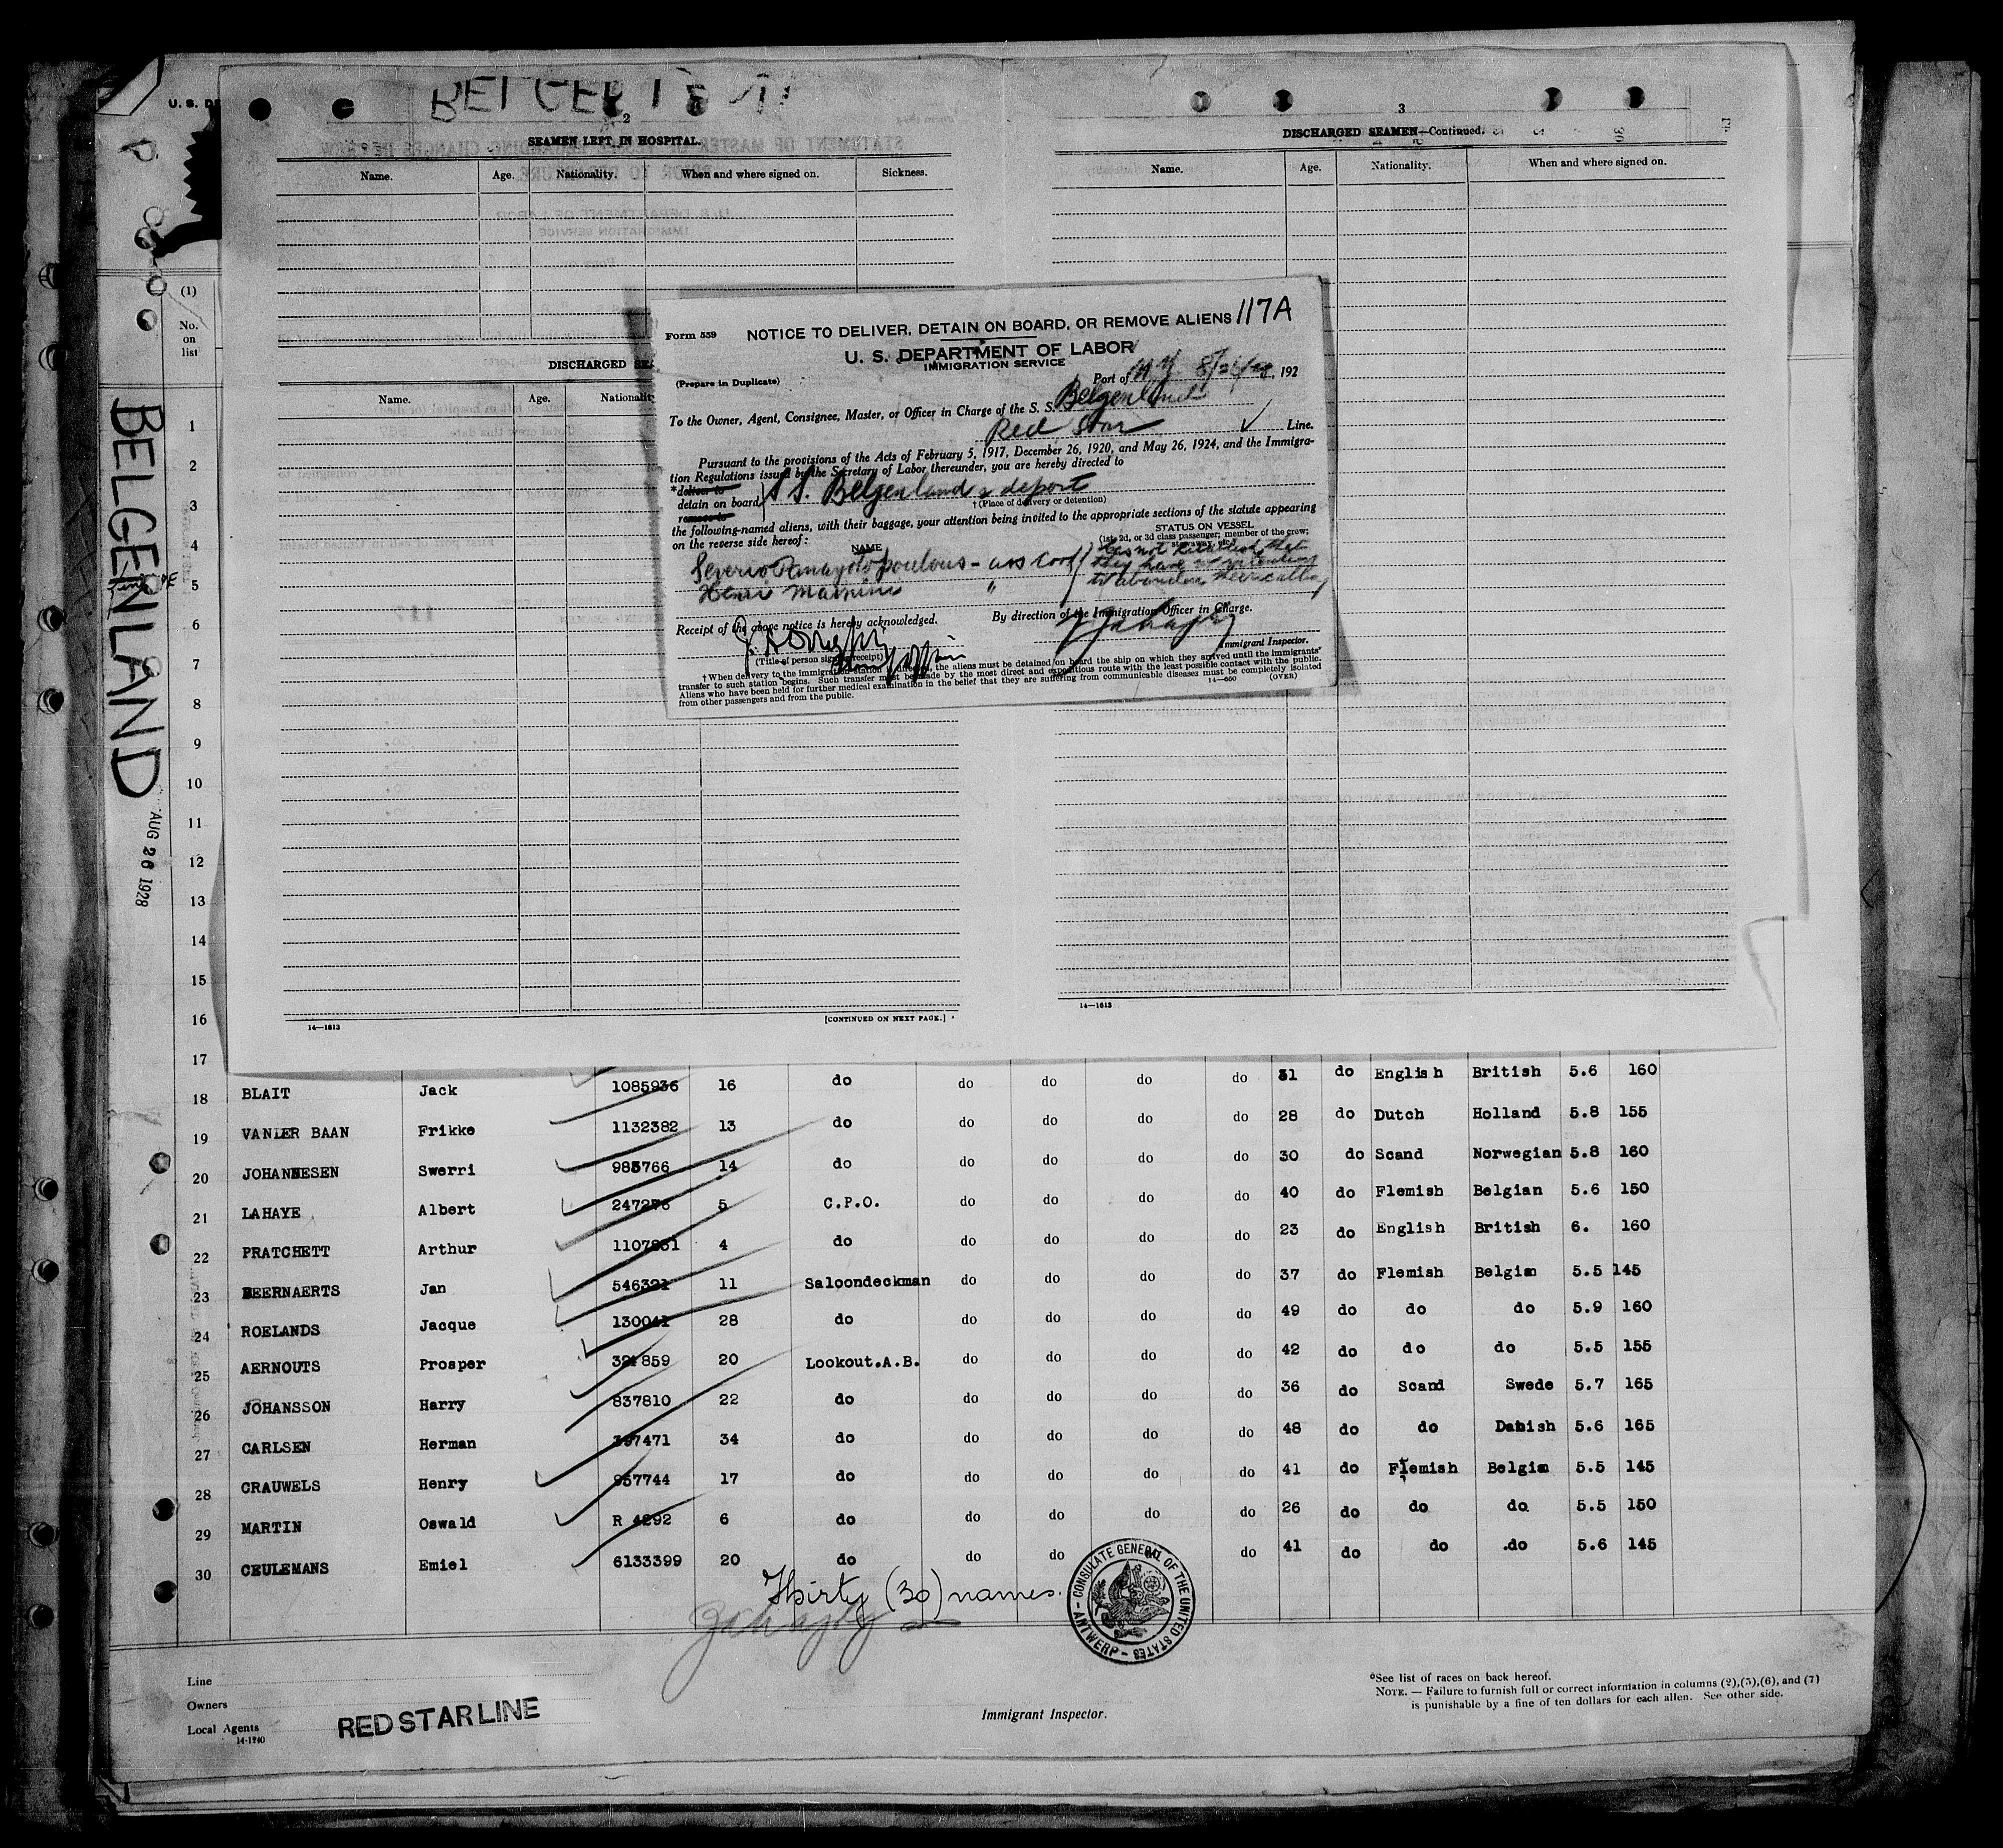 BELGENLAND
AUG 26 1928
U. S. DE
(1)
No.
on
list
2
SEAMEN LEFT IN HOSPITAL.
Name. Age. Nationality. When and where signed on. Sickness.
DISCHARGED SEA
Name. Age. Nationalit
14—1613 [CONTINUED ON NEXT PAGE.]
3
DISCHARGED SEAMEN—Continued.
Name. Age. Nationality. When and where signed on.
14—1613
117A
Form 559 NOTICE TO DELIVER, DETAIN ON BOARD, OR REMOVE ALIENS
U. S. DEPARTMENT OF LABOR
IMMIGRATION SERVICE
(Prepare in Duplicate) Port of N.Y. , 192
To the Owner, Agent, Consignee, Master, or Officer in Charge of the S. S. Belgenland
Red Star Line.
Pursuant to the provisions of the Acts of February 5, 1917, December 26, 1920, and May 26, 1924, and the Immigra-
tion Regulations issued by the Secretary of Labor thereunder, you are hereby directed to
*deliver to
detain on board S S. Belgenland & deport
remove to
†(Place of delivery or detention)
the following-named aliens, with their baggage, your attention being invited to the appropriate sections of the statute appearing
on the reverse side hereof:
NAME
STATUS ON VESSEL
(1st, 2d, or 3d class passenger; member of the crew;
stowaway, etc.)
Henri
has not established that
they have no intention
to abandon their calling
Receipt of the above notice is hereby acknowledged. By direction of the Immigration Officer in Charge.
(Title of person signing receipt) Immigrant Inspector.
† When delivery to the immigration station is directed, the aliens must be detained on board the ship on which they arrived until the immigrants'
transfer to such station begins. Such transfer must be made by the most direct and expeditious route with the least possible contact with the public.
Aliens who have been held for further medical examination in the belief that they are suffering from communicable diseases must be completely isolated
from other passengers and from the public. 14—660 (OVER)
1
2
3
4
5
6
7
8
9
10
11
12
13
14
15
16
17
18 BLAIT Jack 1085936 16 do do do do do 31 do English British 5.6 160
19 VANDER BAAN Frikke 1132382 13 do do do do do 28 do Dutch Holland 5.8 155
20 JOHANNESEN Swerri 985766 14 do do do do do 30 do Scand Norwegian 5.8 160
21 LAHAYE Albert 247276 5 C.P.O. do do do do 40 do Flemish Belgian 5.6 150
22 PRATCHETT Arthur 1107831 4 do do do do do 23 do English British 6. 160
23 BEERNAERTS Jan 546321 11 Saloondeckman do do do do 37 do Flemish Belgian 5.5 145
24 ROELANDS Jacque 130041 28 do do do do do 49 do do do 5.9 160
25 AERNOUTS Prosper 321859 20 Lookout.A.B. do do do do 42 do do do 5.5 155
26 JOHANSSON Harry 837810 22 do do do do do 36 do Scand Swede 5.7 165
27 CARLSEN Herman 397471 34 do do do do do 48 do do Danish 5.6 165
28 CRAUWELS Henry 957744 17 do do do do do 41 do Flemish Belgian 5.5 145
29 MARTIN Oswald R 4292 6 do do do do do 26 do do do 5.5 150
30 CEULEMANS Emiel 6133399 20 do do do do do 41 do do do 5.6 145
Thirty (30) names.
CONSULATE GENERAL OF THE UNITED STATES
ANTWERP
Line
Owners
Local Agents
14-1240
RED STAR LINE
Immigrant Inspector.
*See list of races on back hereof.
NOTE. — Failure to furnish full or correct information in columns (2),(5),(6), and (7)
is punishable by a fine of ten dollars for each alien. See other side.